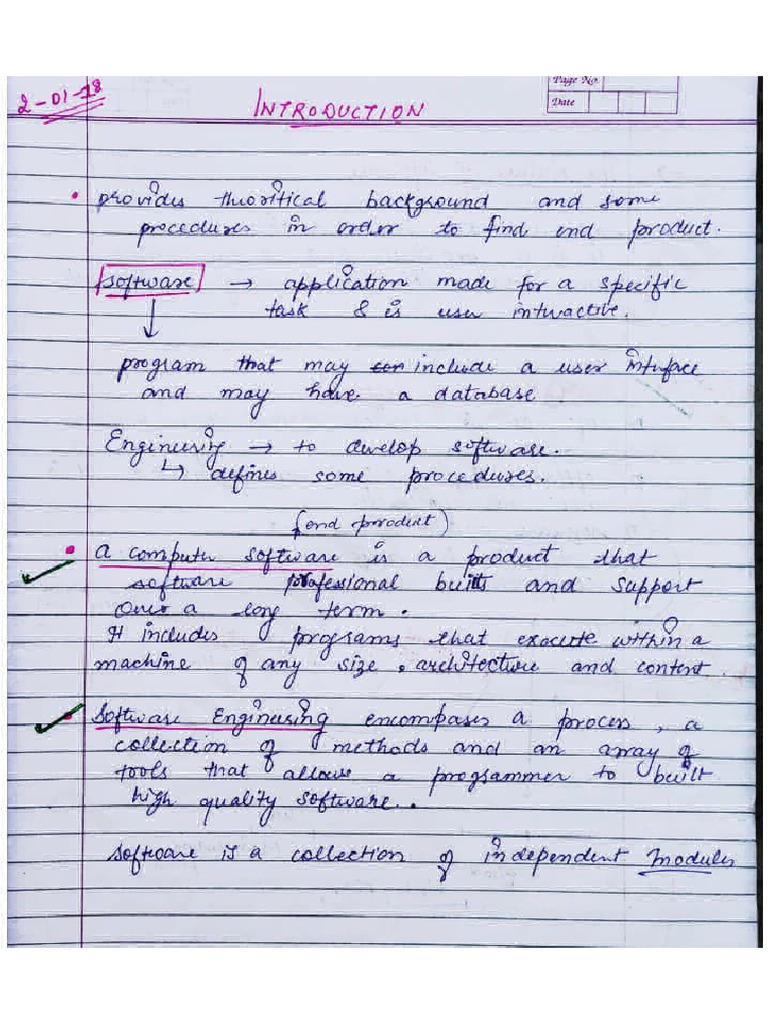 Page No.
Date
2-01-18
INTRODUCTION
• provides theoritical background and some
procedures in order to find end product.
software → application made for a specific
task & is user interactive.
↓
program that may include a user interface
and may have a database
Engineering → to develop software.
↳ defines some procedures.
(end product)
• a computer software is a product that
software professional built and support
over a long term.
It includes programs that execute within a
machine of any size, architecture and content.
✓• Software Engineering encompases a process, a
collection of methods and an array of
tools that allows a programmer to built
high quality software..
software is a collection of independent modules